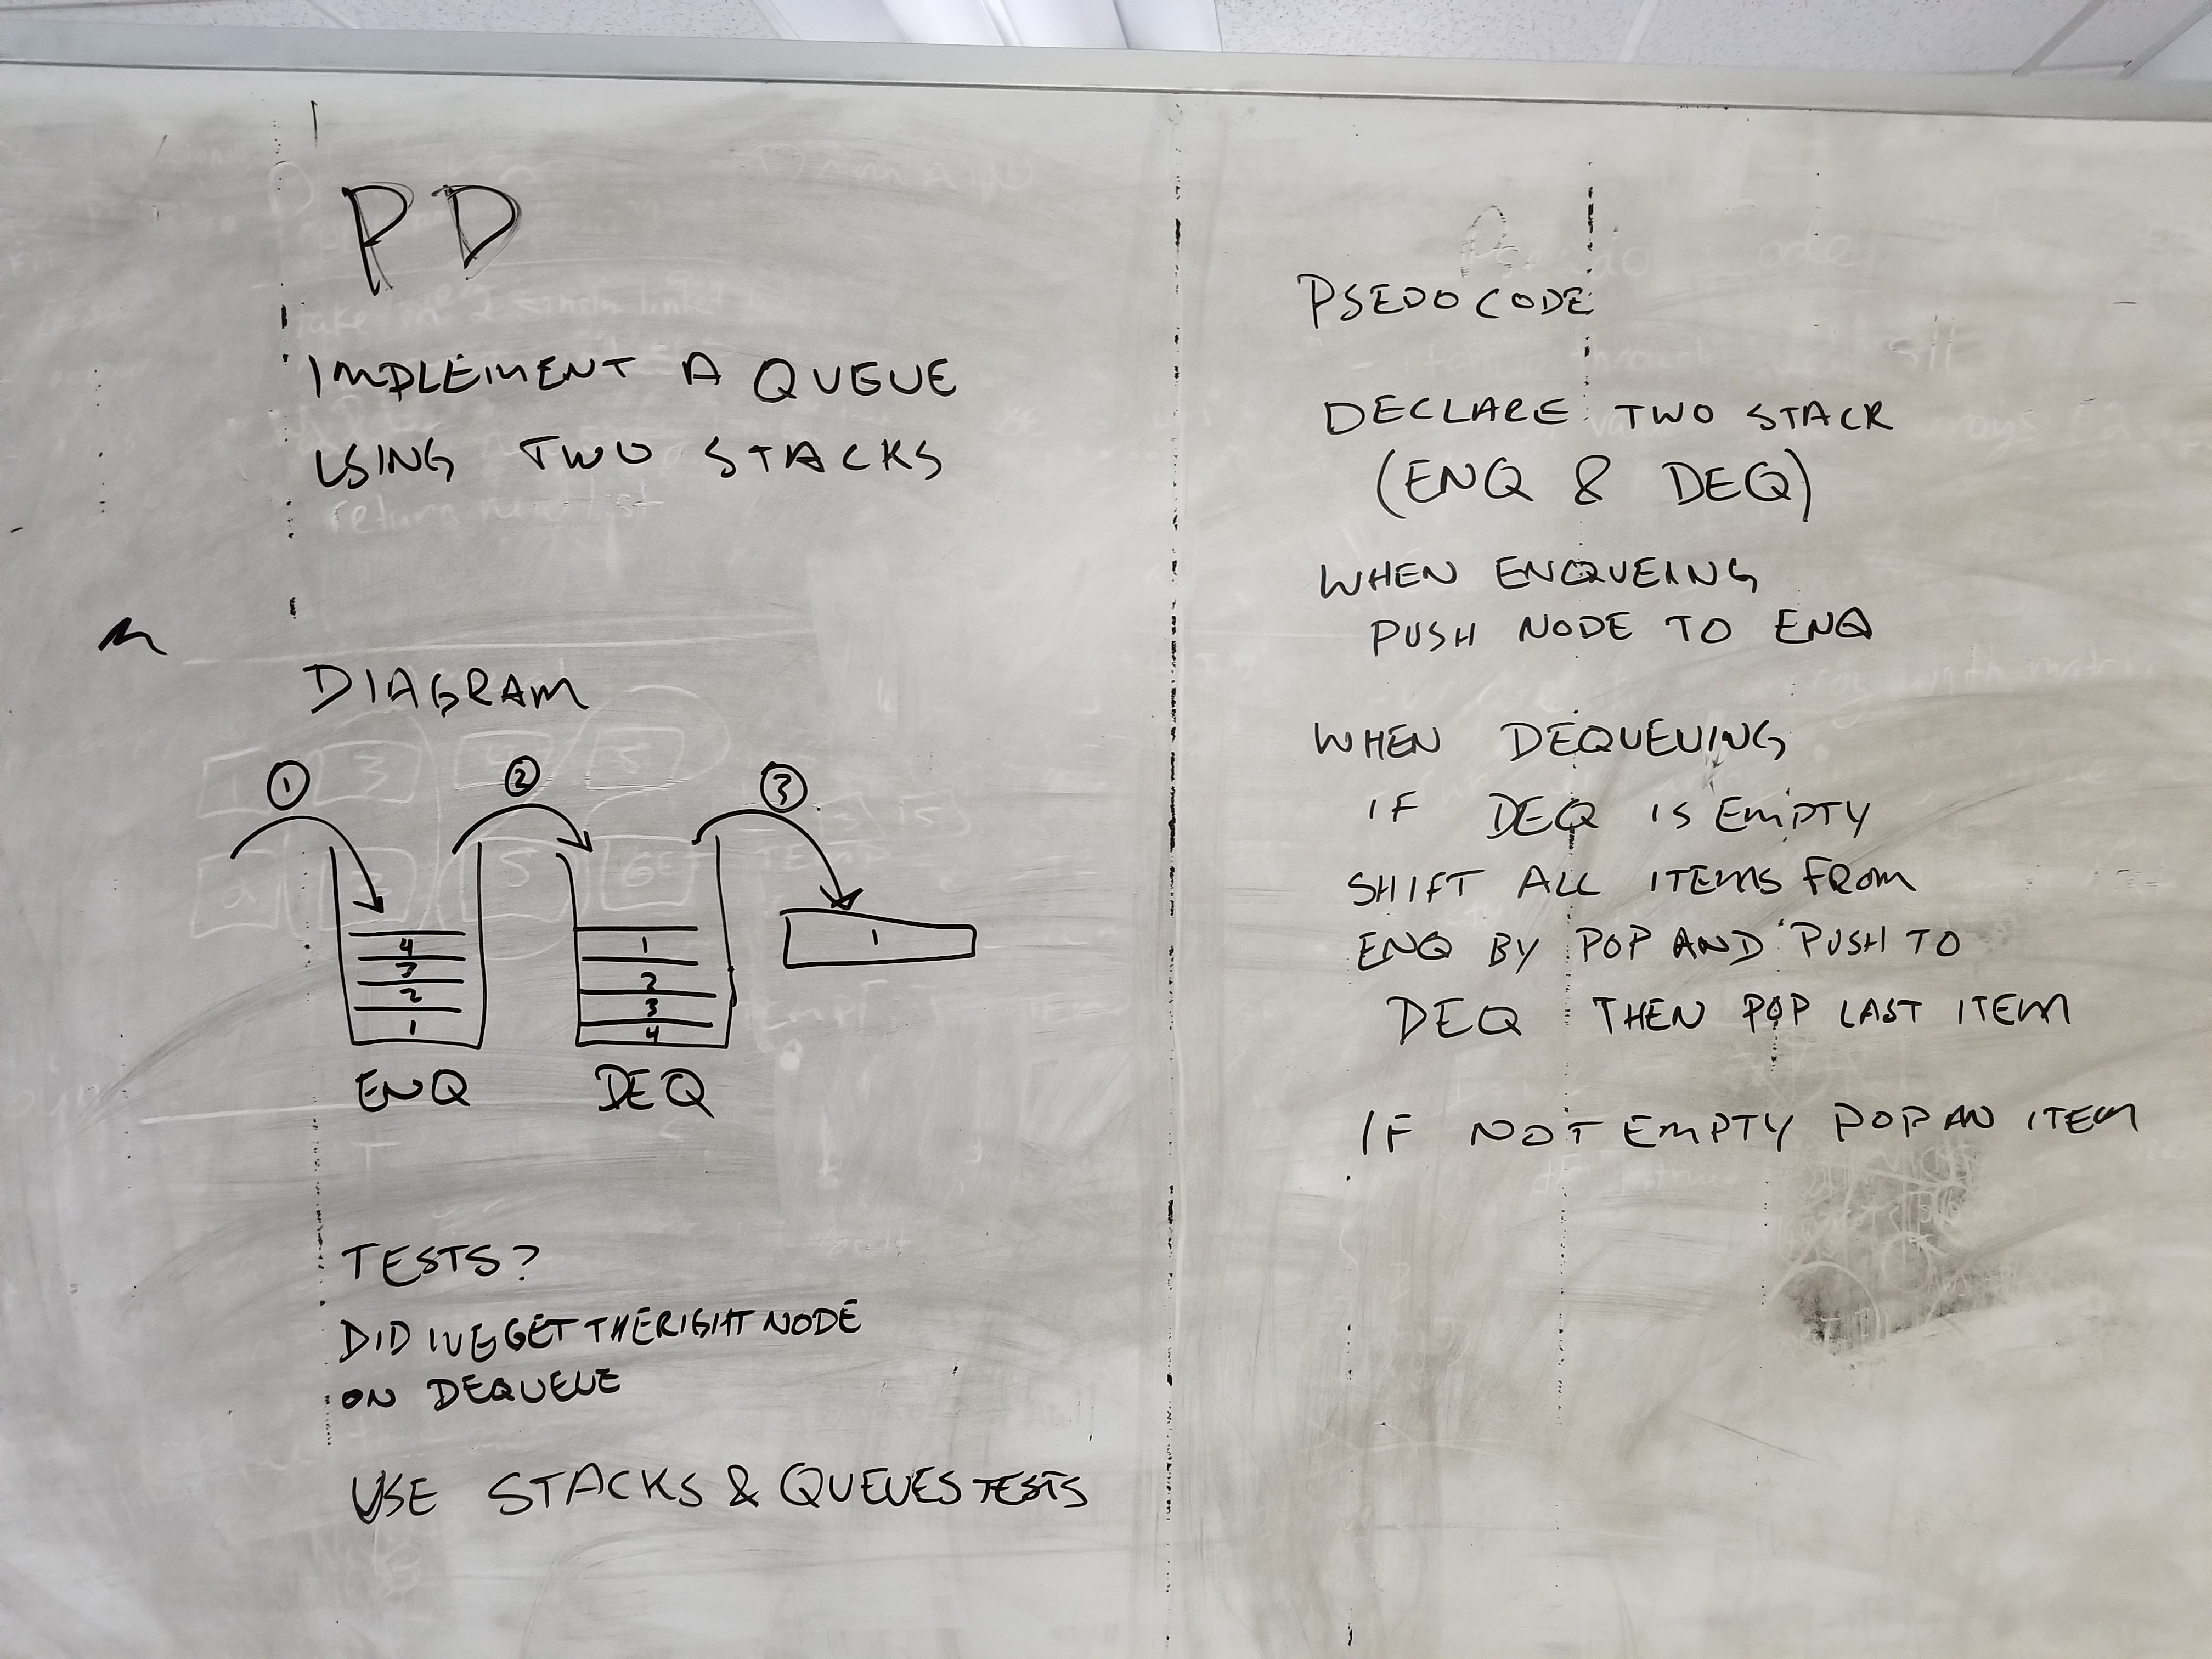 PD
IMPLEMENT A QUEUE
USING TWO STACKS
DIAGRAM
1 2 3
4
3
2
1
ENQ
1
2
3
4
DEQ
1
TESTS?
DID WE GET THE RIGHT NODE
ON DEQUEUE
USE STACKS & QUEUES TESTS
PSEDO CODE
DECLARE TWO STACK
(ENQ & DEQ)
WHEN ENQUEING
PUSH NODE TO ENQ
WHEN DEQUEUING
IF DEQ IS EMPTY
SHIFT ALL ITEMS FROM
ENQ BY POP AND PUSH TO
DEQ THEN POP LAST ITEM
IF NOT EMPTY POP AN ITEM